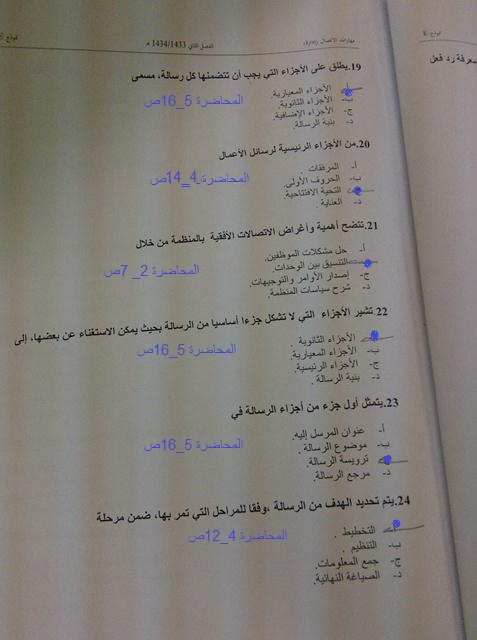 نموذج E
مهارات الاتصال (إدارة)
الفصل الثاني 1434/1433 م
نموذج E
معرفة رد فعل
19.يطلق على الأجزاء التي يجب أن تتضمنها كل رسالة، مسمى
أ- الأجزاء المعيارية.
ب- الأجزاء الثانوية.
ج- الأجزاء الإضافية.
د- بنية الرسالة.
المحاضرة 5_16ص
20.من الأجزاء الرئيسية لرسائل الأعمال
أ- المرفقات.
ب- الحروف الأولى.
التحية الافتتاحية.
د- العناية.
المحاضرة 4_14ص
21.تتضح أهمية وأغراض الاتصالات الأفقية بالمنظمة من خلال
أ- حل مشكلات الموظفين.
التنسيق بين الوحدات.
ج- إصدار الأوامر والتوجيهات.
د- شرح سياسات المنظمة.
المحاضرة 2_ 7ص
22.تشير الأجزاء التي لا تشكل جزءا أساسيا من الرسالة بحيث يمكن الاستغناء عن بعضها، إلى
الأجزاء الثانوية .
ب- الأجزاء المعيارية.
ج- الأجزاء الرئيسية.
د- بنية الرسالة .
المحاضرة 5_16ص
23.يتمثل أول جزء من أجزاء الرسالة في
أ- عنوان المرسل إليه.
ب- موضوع الرسالة .
ترويسة الرسالة.
د- مرجع الرسالة.
المحاضرة 5_16ص
24.يتم تحديد الهدف من الرسالة ،وفقا للمراحل التي تمر بها، ضمن مرحلة
التخطيط .
ب- التنظيم .
ج- جمع المعلومات.
د- الصياغة النهائية.
المحاضرة 4_12ص